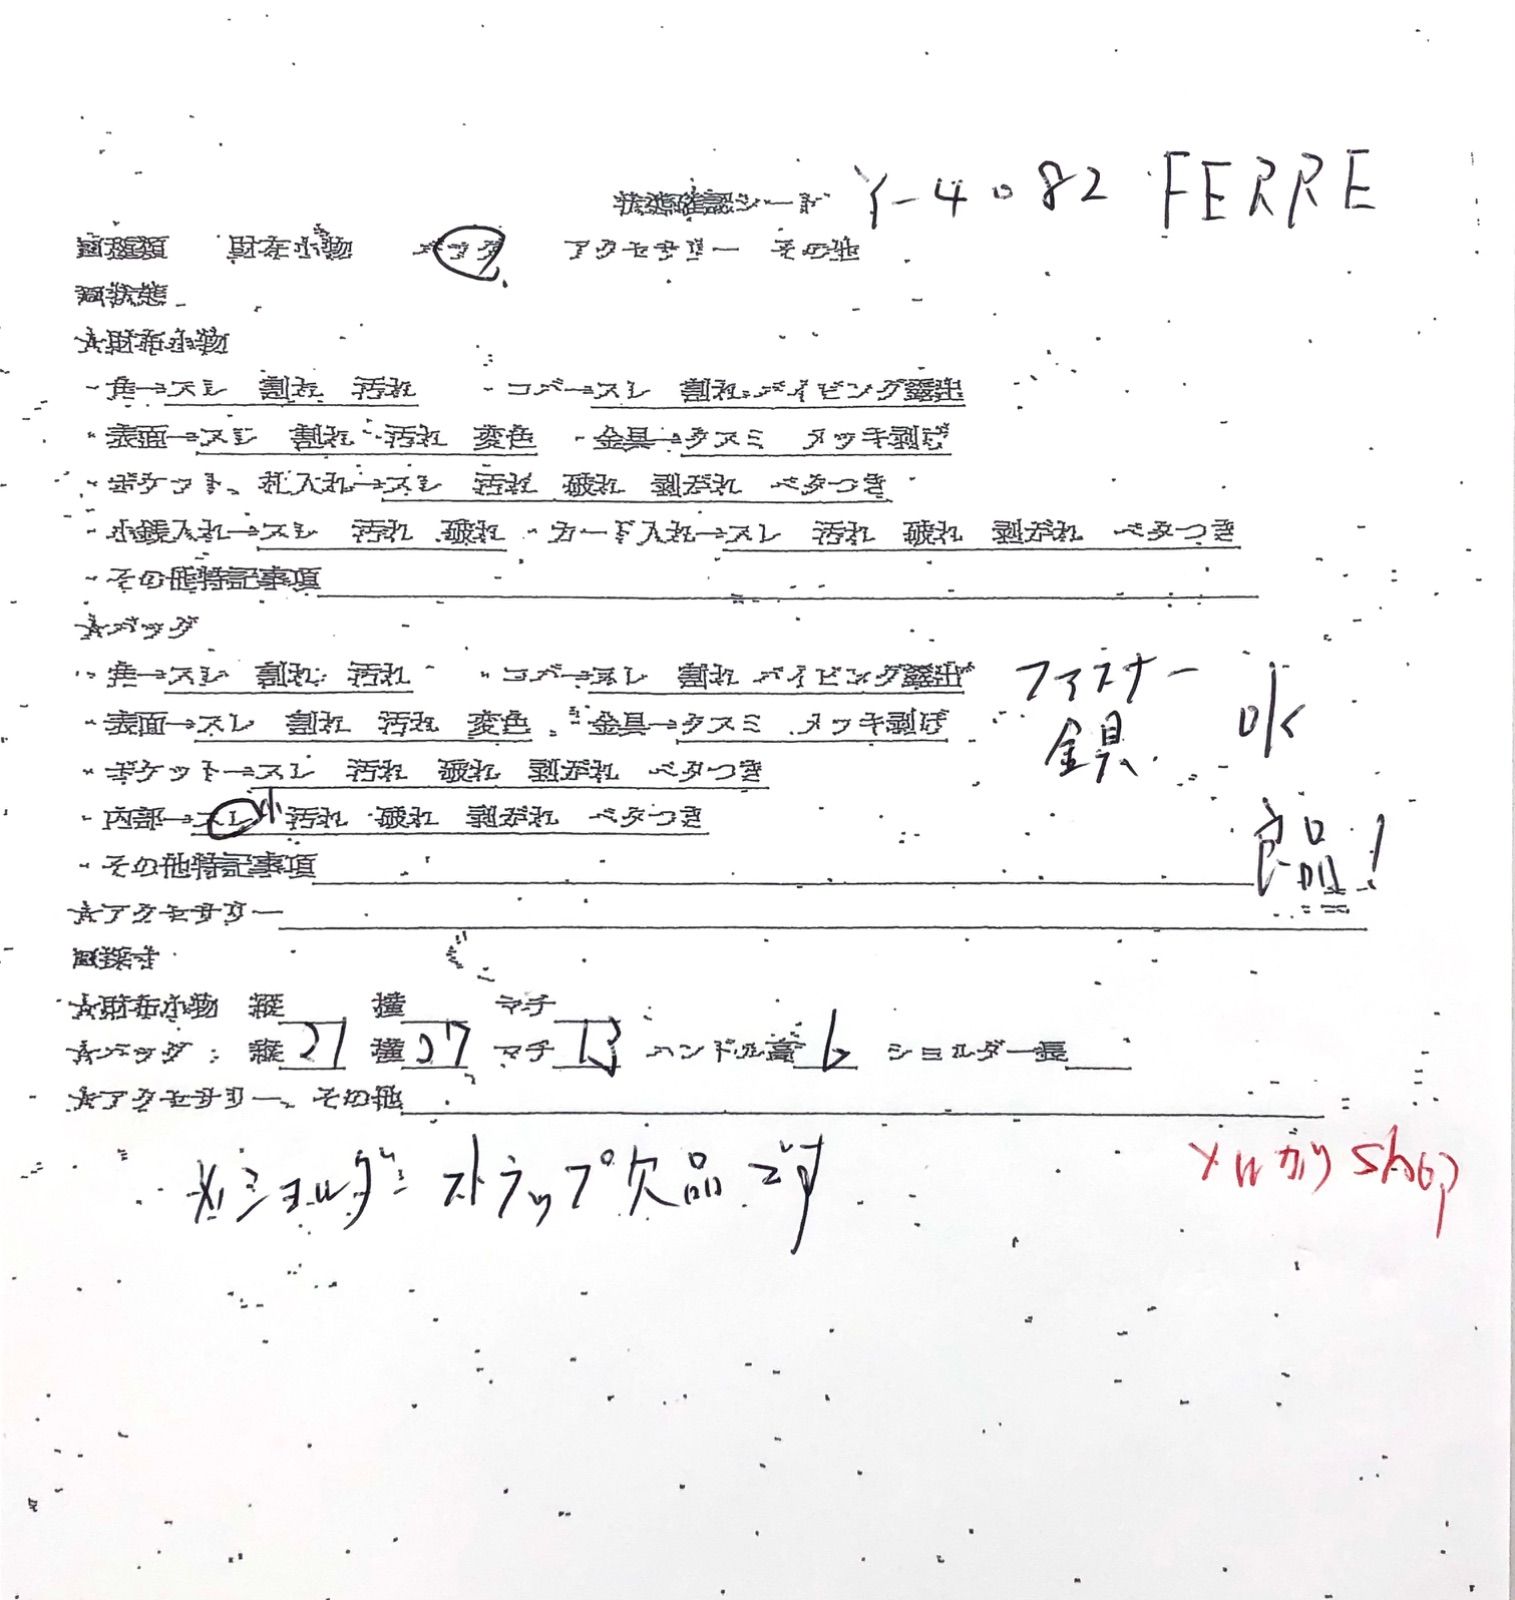 状態確認シート Y-4082 FERRE
■種類 財布小物 バッグ アクセサリー その他
■状態
☆財布小物
・角→スレ 割れ 汚れ ・コバ→スレ 割れ パイピング露出
・表面→スレ 割れ 汚れ 変色 ・金具→クスミ メッキ剥げ
・ポケット、札入れ→スレ 汚れ 破れ 剥がれ ベタつき
・小銭入れ→スレ 汚れ 破れ ・カード入れ→スレ 汚れ 破れ 剥がれ ベタつき
・その他特記事項
☆バッグ
・角→スレ 割れ 汚れ ・コバ→スレ 割れ パイピング露出 ファスナー
・表面→スレ 割れ 汚れ 変色 ・金具→クスミ メッキ剥げ 金具 ok
・ポケット→スレ 汚れ 破れ 剥がれ ベタつき
・内部→スレ 小 汚れ 破れ 剥がれ ベタつき 良品!
・その他特記事項
☆アクセサリー
■採寸
☆財布小物 縦 横 マチ
☆バッグ 縦21 横27 マチ13 ハンドル高6 ショルダー長
☆アクセサリー、その他
※ショルダーストラップ欠品です
shop